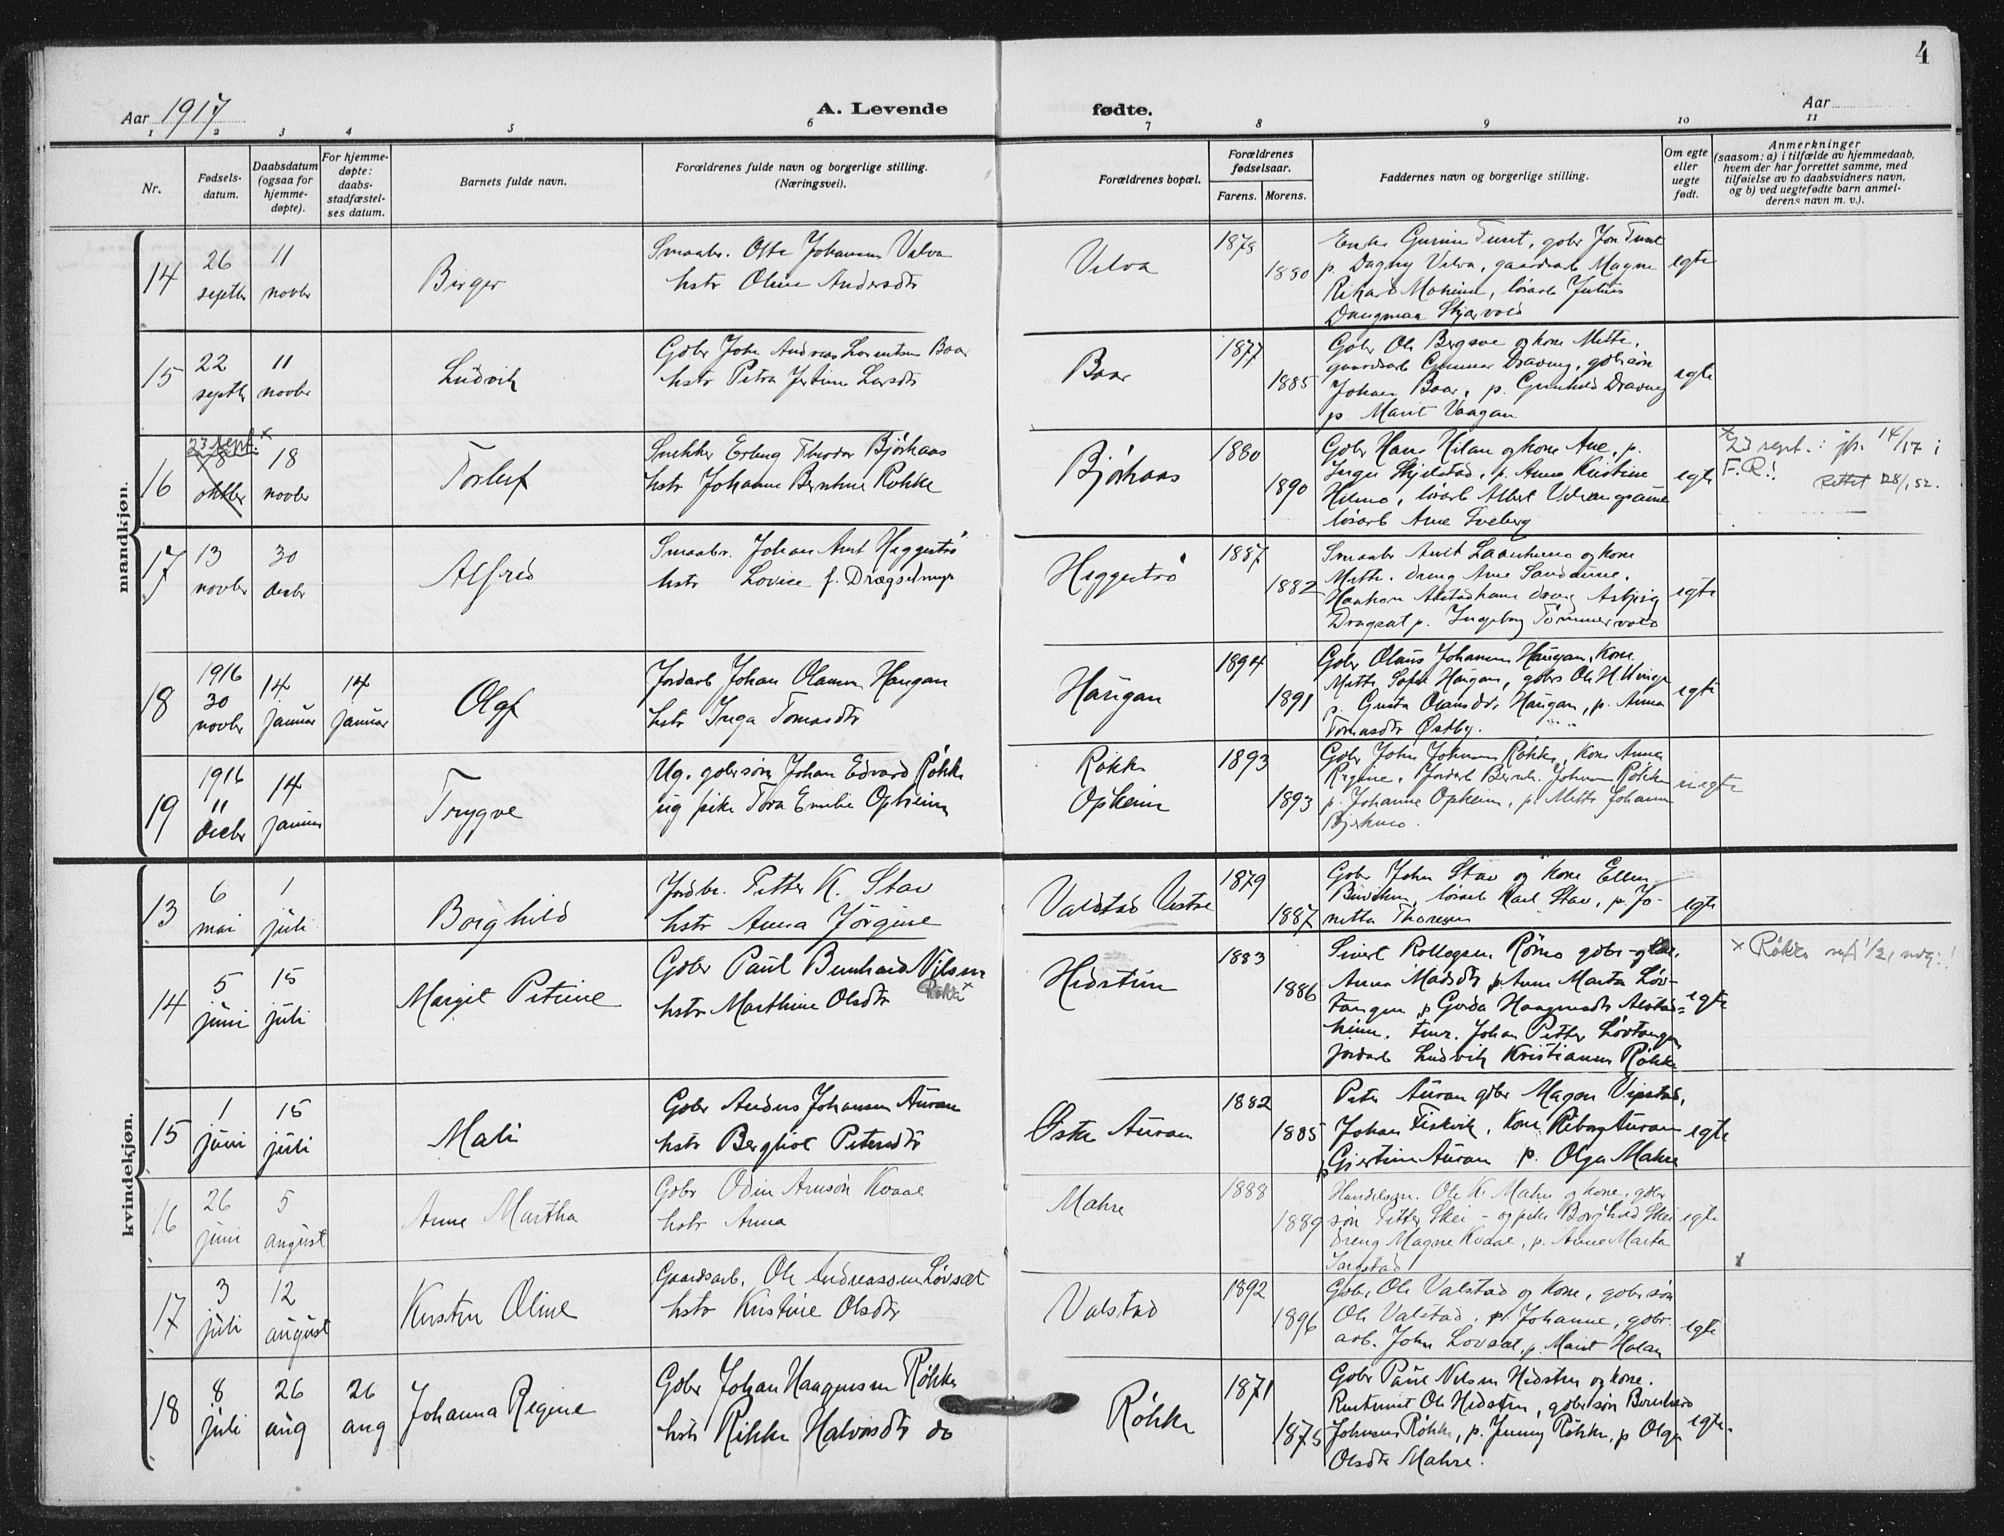 4
Aar 1917
A. Levende
fødte.
Aar
1 2 3 4 5 6 7 8 9 10 11
Nr.
Fødsels-
datum.
Daabsdatum
(ogsaa for
hjemme-
døpte).
For hjemme-
døpte:
daabs-
stadfæstel-
ses datum.
Barnets fulde navn.
Forældrenes fulde navn og borgerlige stilling.
(Næringsvei).
Forældrenes bopæl.
Forældrenes
fødselsaar.
Farens. Morens.
Faddernes navn og borgerlige stilling.
Om egte
eller
uegte
født.
Anmerkninger
(saasom: a) i tilfælde av hjemmedaab,
hvem der har forrettet samme, med
tilføielse av to daabsvidners navn,
og b) ved uegtefødte barn anmel-
derens navn m. v.).
mandkjøn.
14
26
septbr
11
novbr
Birger
Smaabr. Otte Johansen Velva
hstr Oline Andersdtr
Velva
1878
1880
p. Dagny Velva, gaardsarb Magne
egte
15
22
septbr
11
novbr
Ludvik
Gbr John Andreas Lorentsen Baar
hstr Petra Jertine Larsdtr
Baar
1877
1885
Gbr Ole Bergsve og kone Mette,
gaardsarb Gunnar Draveng, gbrsøn
Johan Baar, p. Gunhild Draveng
p Marit Vaagan
egte
16
23 sept. x
18
oktbr
18
novbr
Torleif
Snekker Erling Theodor Bjørkaas
hstr Johanne Bernhine Rokke
Bjørkaas
1880
1890
Gbr Hans Hilan og kone Ane, p.
Inga Skjelstad, p. Anna Kristine
løsarb Arne Tveberg
egte
x 23 sept.: jfr. 14/17 i
F.R.!
Rettet 28/1 52.
17
13
novbr
30
decbr
Alfred
Smaabr. Johan Arnt Heggestrø
hstr Lovise f. Dragsetmyr
Heggestrø
1887
1882
Mette. dreng Arne Sandaune,
Dragset p. Ingeborg Tømmervold
egte
18
1916
30
novbr
14
januar
14
januar
Olaf
Jordarb Johan Olausen Haugan
hstr Inga Tomasdtr
Haugan
1894
1891
Gbr Olaus Johansen Haugan, kone
p. Gusta Olausdtr Haugan, p. Anna
Tomasdtr Østby.
egte
19
1916
11
decbr
14
januar
Trygve
Ug. gbrsøn Johan Edvard Røkke
ug pike Tora Emilie Opheim
Røkke
Opheim
1893
1893
Gbr John Johnsen Røkke, kone Anna
Regine, Jordarb Bernh. Johnsen Røkke
p. Johanne Opheim, p. Mette Johanne
Bjerkmo.
uegte
kvindekjøn.
13
6
mai
1
juli
Borghild
Jordbr. Petter K. Stav
hstr Anna Jørgine
Valstad Vestre
1879
1887
Gbr John Stav og kone Ellen
løsarb Karl Stav, p. Jo-
netta Thoresen
egte
14
5
juni
15
juli
Margit Petrine
Gbr Paul Bernhard Nilsen
Røkke x
hstr Marthine Olsdtr
Hidstun
1883
1886
Sivert Rollogsen Rømo gbr og kone
Anna Madsdtr p Anne Marta Løv-
tangen p Gerda Haagensdtr Alstad-
heim. Tmr. Johan Petter Løvtangen
Jordarb Ludvik Kristiansen Røkke
egte
x Røkke
15
1
juni
15
juli
Mali
Gbr Anders Johansen Auran
hstr Bergliot Petersdtr
Østre Auran
1882
1885
Peter Auran gbr Magon Vipstad,
Johan Fiskvik, kone Riborg Auran
p Gjertine Auran p. Olga Mahre
egte
16
26
juni
5
august
Anne Martha
Gbr Odin Arnsøn Kvaal
hstr Anna
Mahre
1888
1889
Handelsm. Ole K. Mahre og kone, gbr
søn Petter Skei - og pike Borghild Skei
dreng Magne Kvaal, p. Anne Marta
egte
x
17
3
juli
12
august
Kirsten Oline
Gaardsarb. Ole Andreassen Løvsæt
hstr Kristine Olsdtr
Valstad
1892
1896
Gbr. Ole Valstad og kone, gbrsøn
Ole Valstad, p. Johanne, gbr.
arb. John Lovsæt, p. Marit Holan
egte
18
8
juli
26
aug
26
aug
Johanna Regine
Gbr Johan Haagensen Røkke
hstr Rikke Halvorsdtr do
Røkke
1871
1875
Gbr Paul Nilsen Hidsten og kone.
Rentenist Ole Hidsten, gbrsøn Bernhard
Johnsen Røkke, p. Jenny Røkke, p Olga
Olsdtr Mahre.
egte